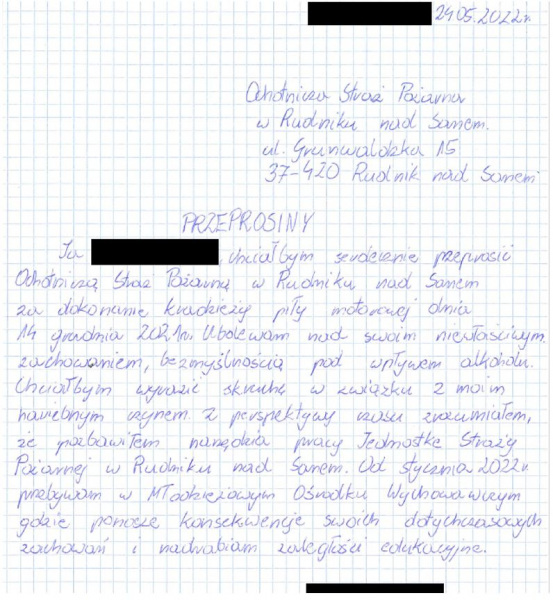 24.05.2022r.
Ochotnicza Straż Pożarna
w Rudniku nad Sanem.
ul. Grunwaldzka 15
37-420 Rudnik nad Sanem
PRZEPROSINY
Ja chciałbym serdecznie przeprosić
Ochotniczą Straż Pożarną w Rudniku nad Sanem
za dokonanie kradzieży piły motorowej dnia
14 grudnia 2021r. Ubolewam nad swoim niewłaściwym
zachowaniem, bezmyślnością pod wpływem alkoholu.
Chciałbym wyrazić skruchę w związku z moim
haniebnym czynem. Z perspektywy czasu zrozumiałem,
że pozbawiłem narzędzia pracy Jednostkę Straży
Pożarnej w Rudniku nad Sanem. Od stycznia 2022r
przebywam w Młodzieżowym Ośrodku Wychowawczym
gdzie ponoszę konsekwencje swoich dotychczasowych
zachowań i nadrabiam zaległości edukacyjne.